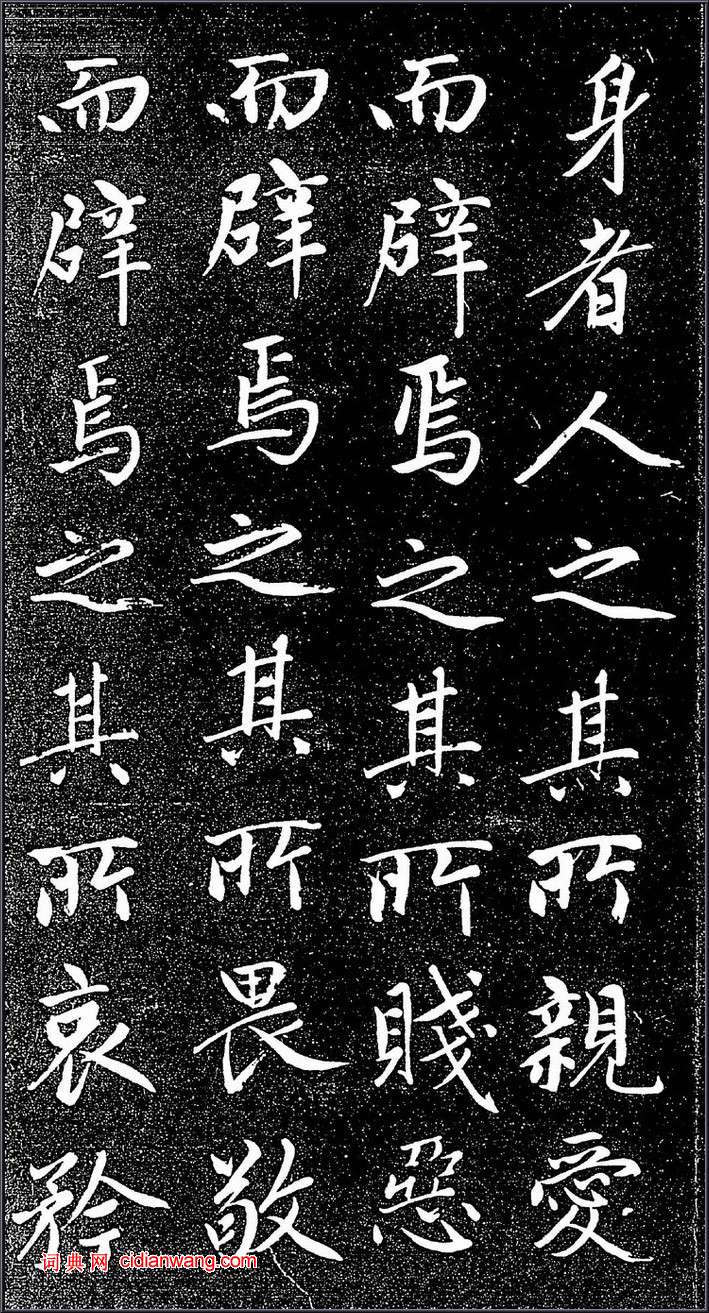 身者人之其所親愛
而辟焉之其所賤惡
而辟焉之其所畏敬
而辟焉之其所哀矜
词典网 cidianwang.com